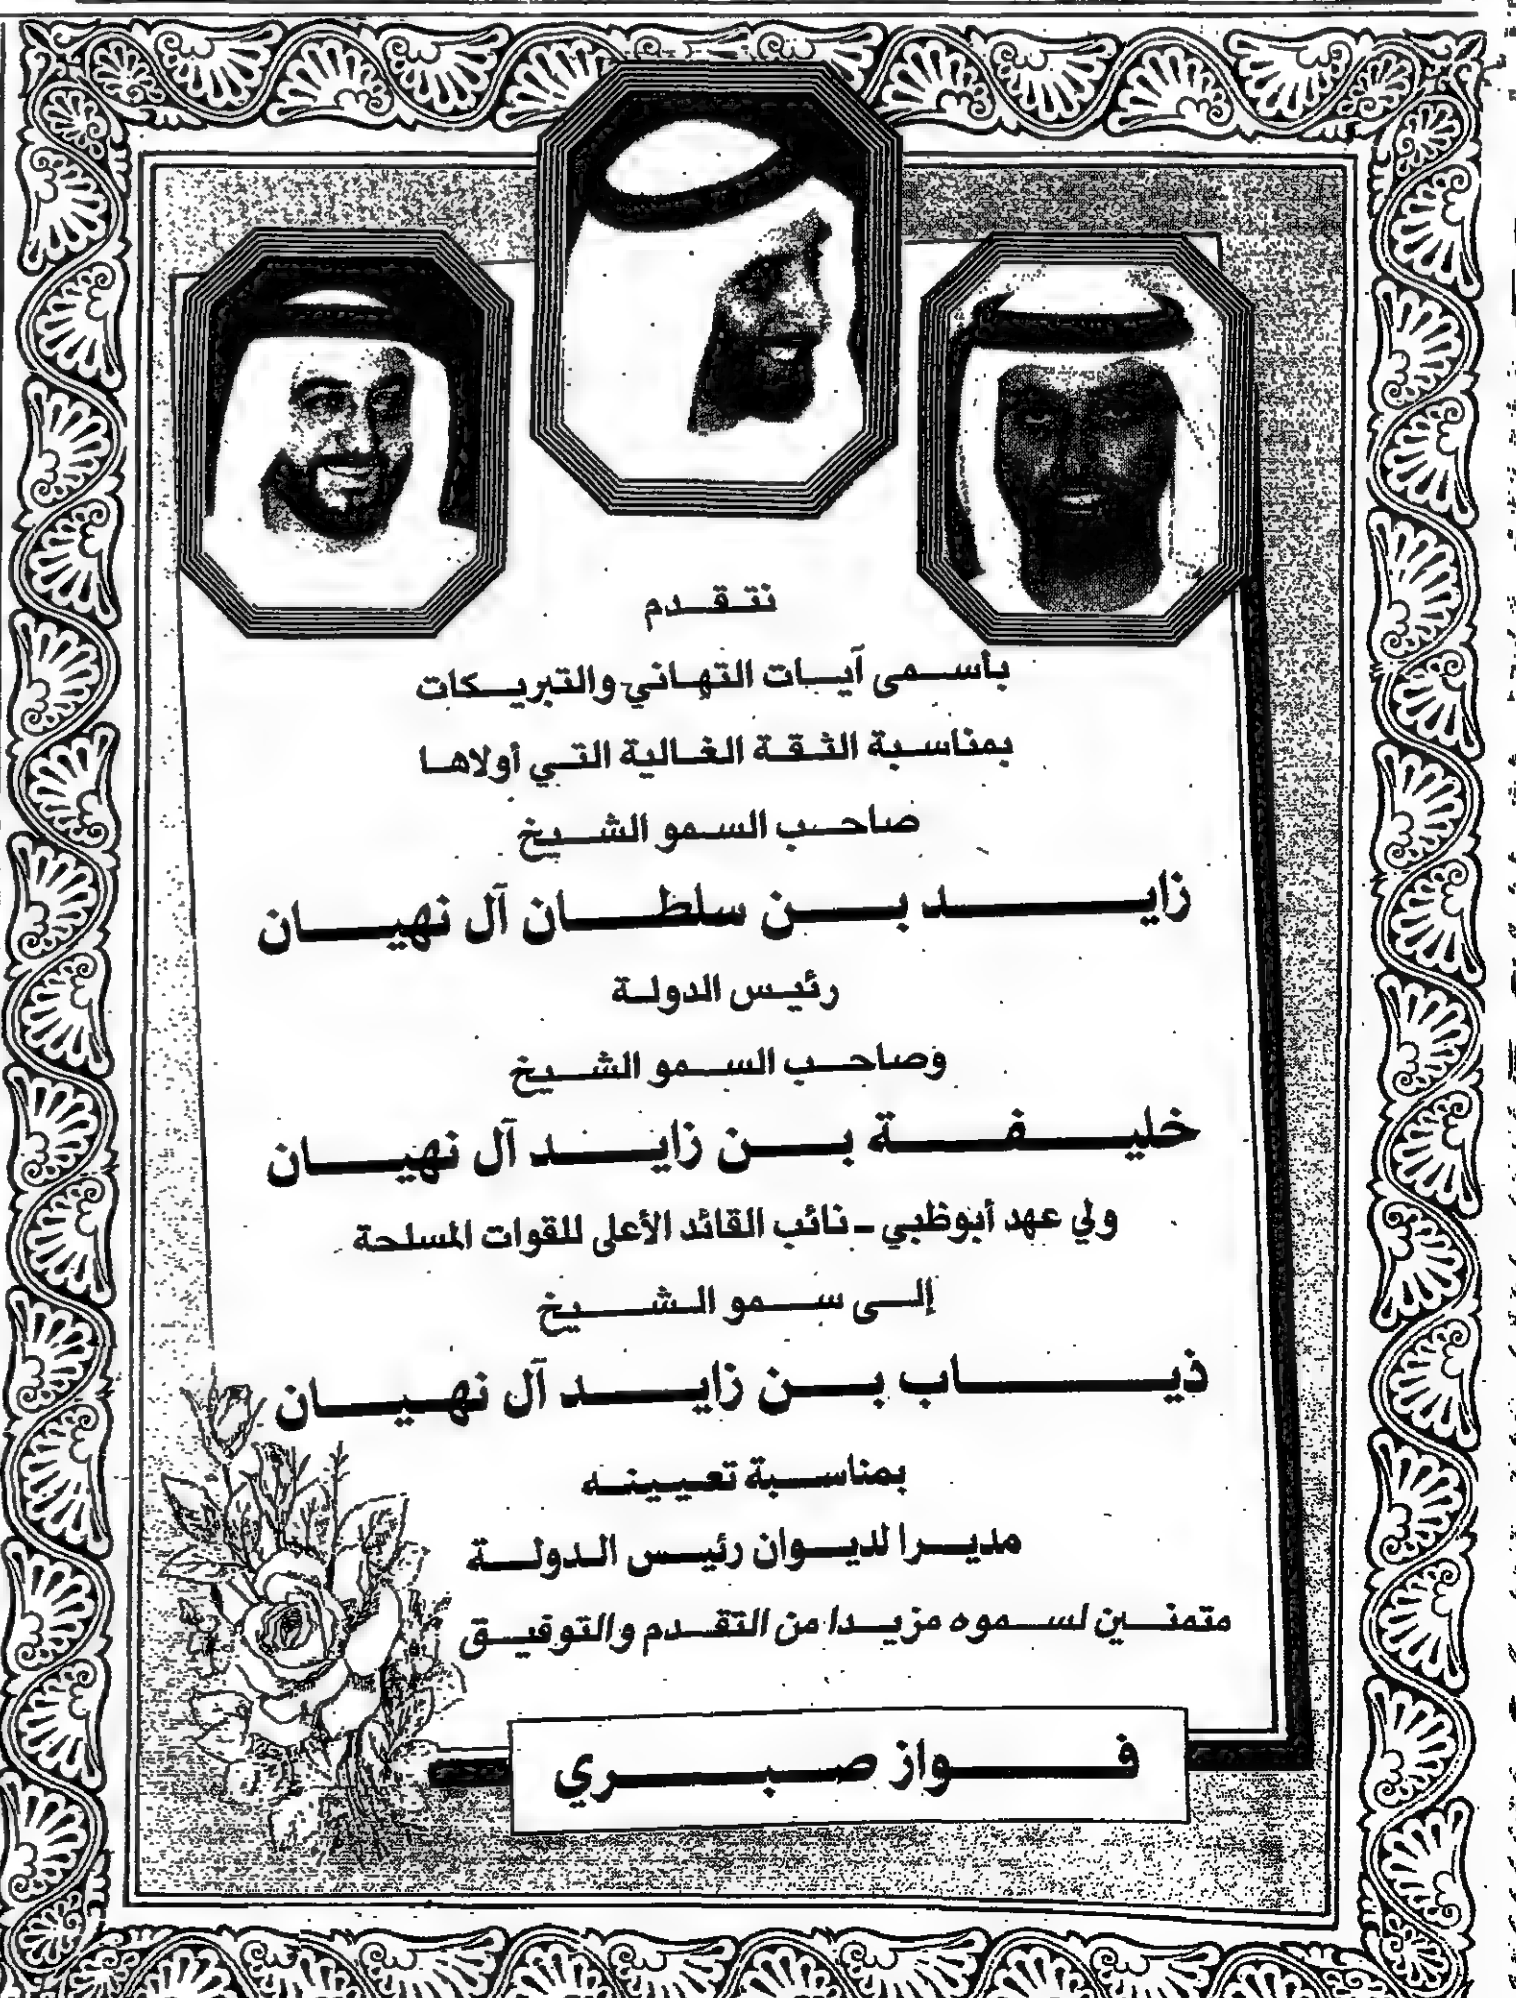 نتقدم
بأسمى آيات التهاني والتبريكات
بمناسبة الثقة الغالية التي أولاها
صاحب السمو الشيخ
زايد بن سلطان آل نهيان
رئيس الدولة
وصاحب السمو الشيخ
خليفة بن زايد آل نهيان
ولي عهد أبوظبي - نائب القائد الأعلى للقوات المسلحة
إلى سمو الشيخ
ذياب بن زايد آل نهيان
بمناسبة تعيينه
مديرا لديوان رئيس الدولة
متمنين لسموه مزيدا من التقدم والتوفيق
فواز صبري